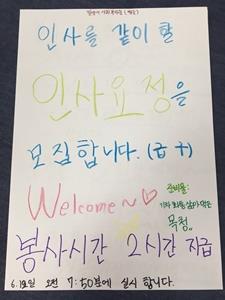 인사를 같이 할
인사요정을
모집합니다. (급구)
Welcome~♡
준비물:
목청..
봉사시간 2시간 지급
오전 7:50분에 실시 합니다.